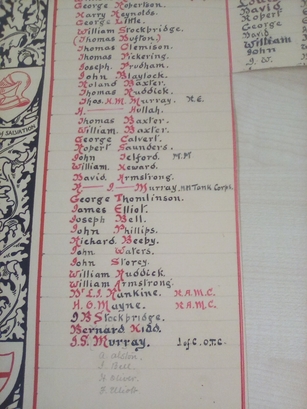 George Robertson.
Harry Reynolds.
George Little.
William Stockbridge.
(Thomas Button)
Thomas Clemison.
Thomas Pickering.
Joseph Prudham.
John Blaylock.
Roland Baxter.
Thomas Ruddick.
Thos. H.M. Murray. R.E.
H—— Hullah.
Thomas Baxter.
William Baxter.
George Calvert.
Robert Saunders.
John Telford. M.M
William Heward.
David Armstrong.
R—— J—— Murray, Tank Corps.
George Thomlinson.
James Elliot.
Joseph Bell.
John Phillips.
Richard Beeby.
John Waters.
John Storey.
William Ruddick.
William Armstrong.
Wm L.J. Rankine. R.A.M.C.
H. G. Mayne. R.A.M.C.
J B Stockbridge.
Bernard Kidd.
J.S. Murray. I of C. O.T.C.
J. Bell.
H Oliver.
F. Elliot
SALVATION
David.
Robert
George
David
William
John
J. W.